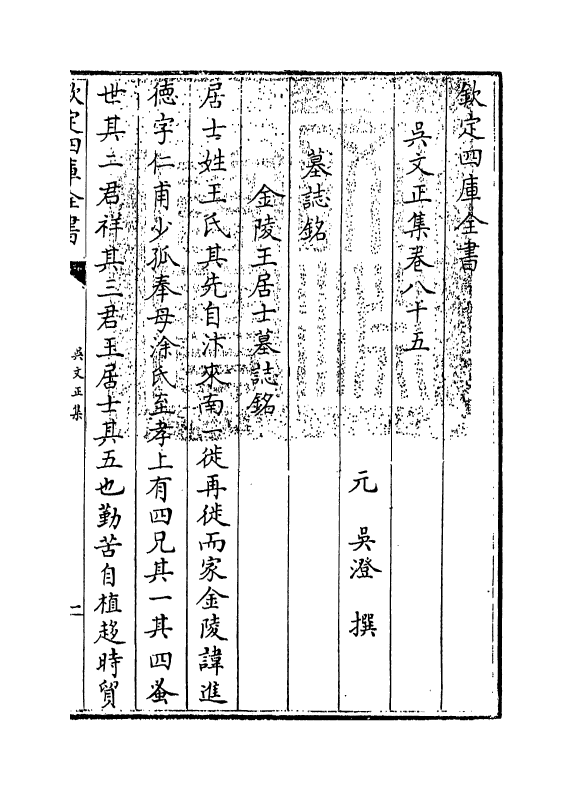 欽定四庫全書
吳文正集卷八十五
元 吳澄 撰
墓誌銘
金陵王居士墓誌銘
居士姓王氏其先自汴來南一徙再徙而家金陵諱進
德字仁甫少孤奉母涂氏至孝上有四兄其一其四蚤
世其二君祥其三君玉居士其五也勤苦自植趍時貿
欽定四庫全書
吳文正集